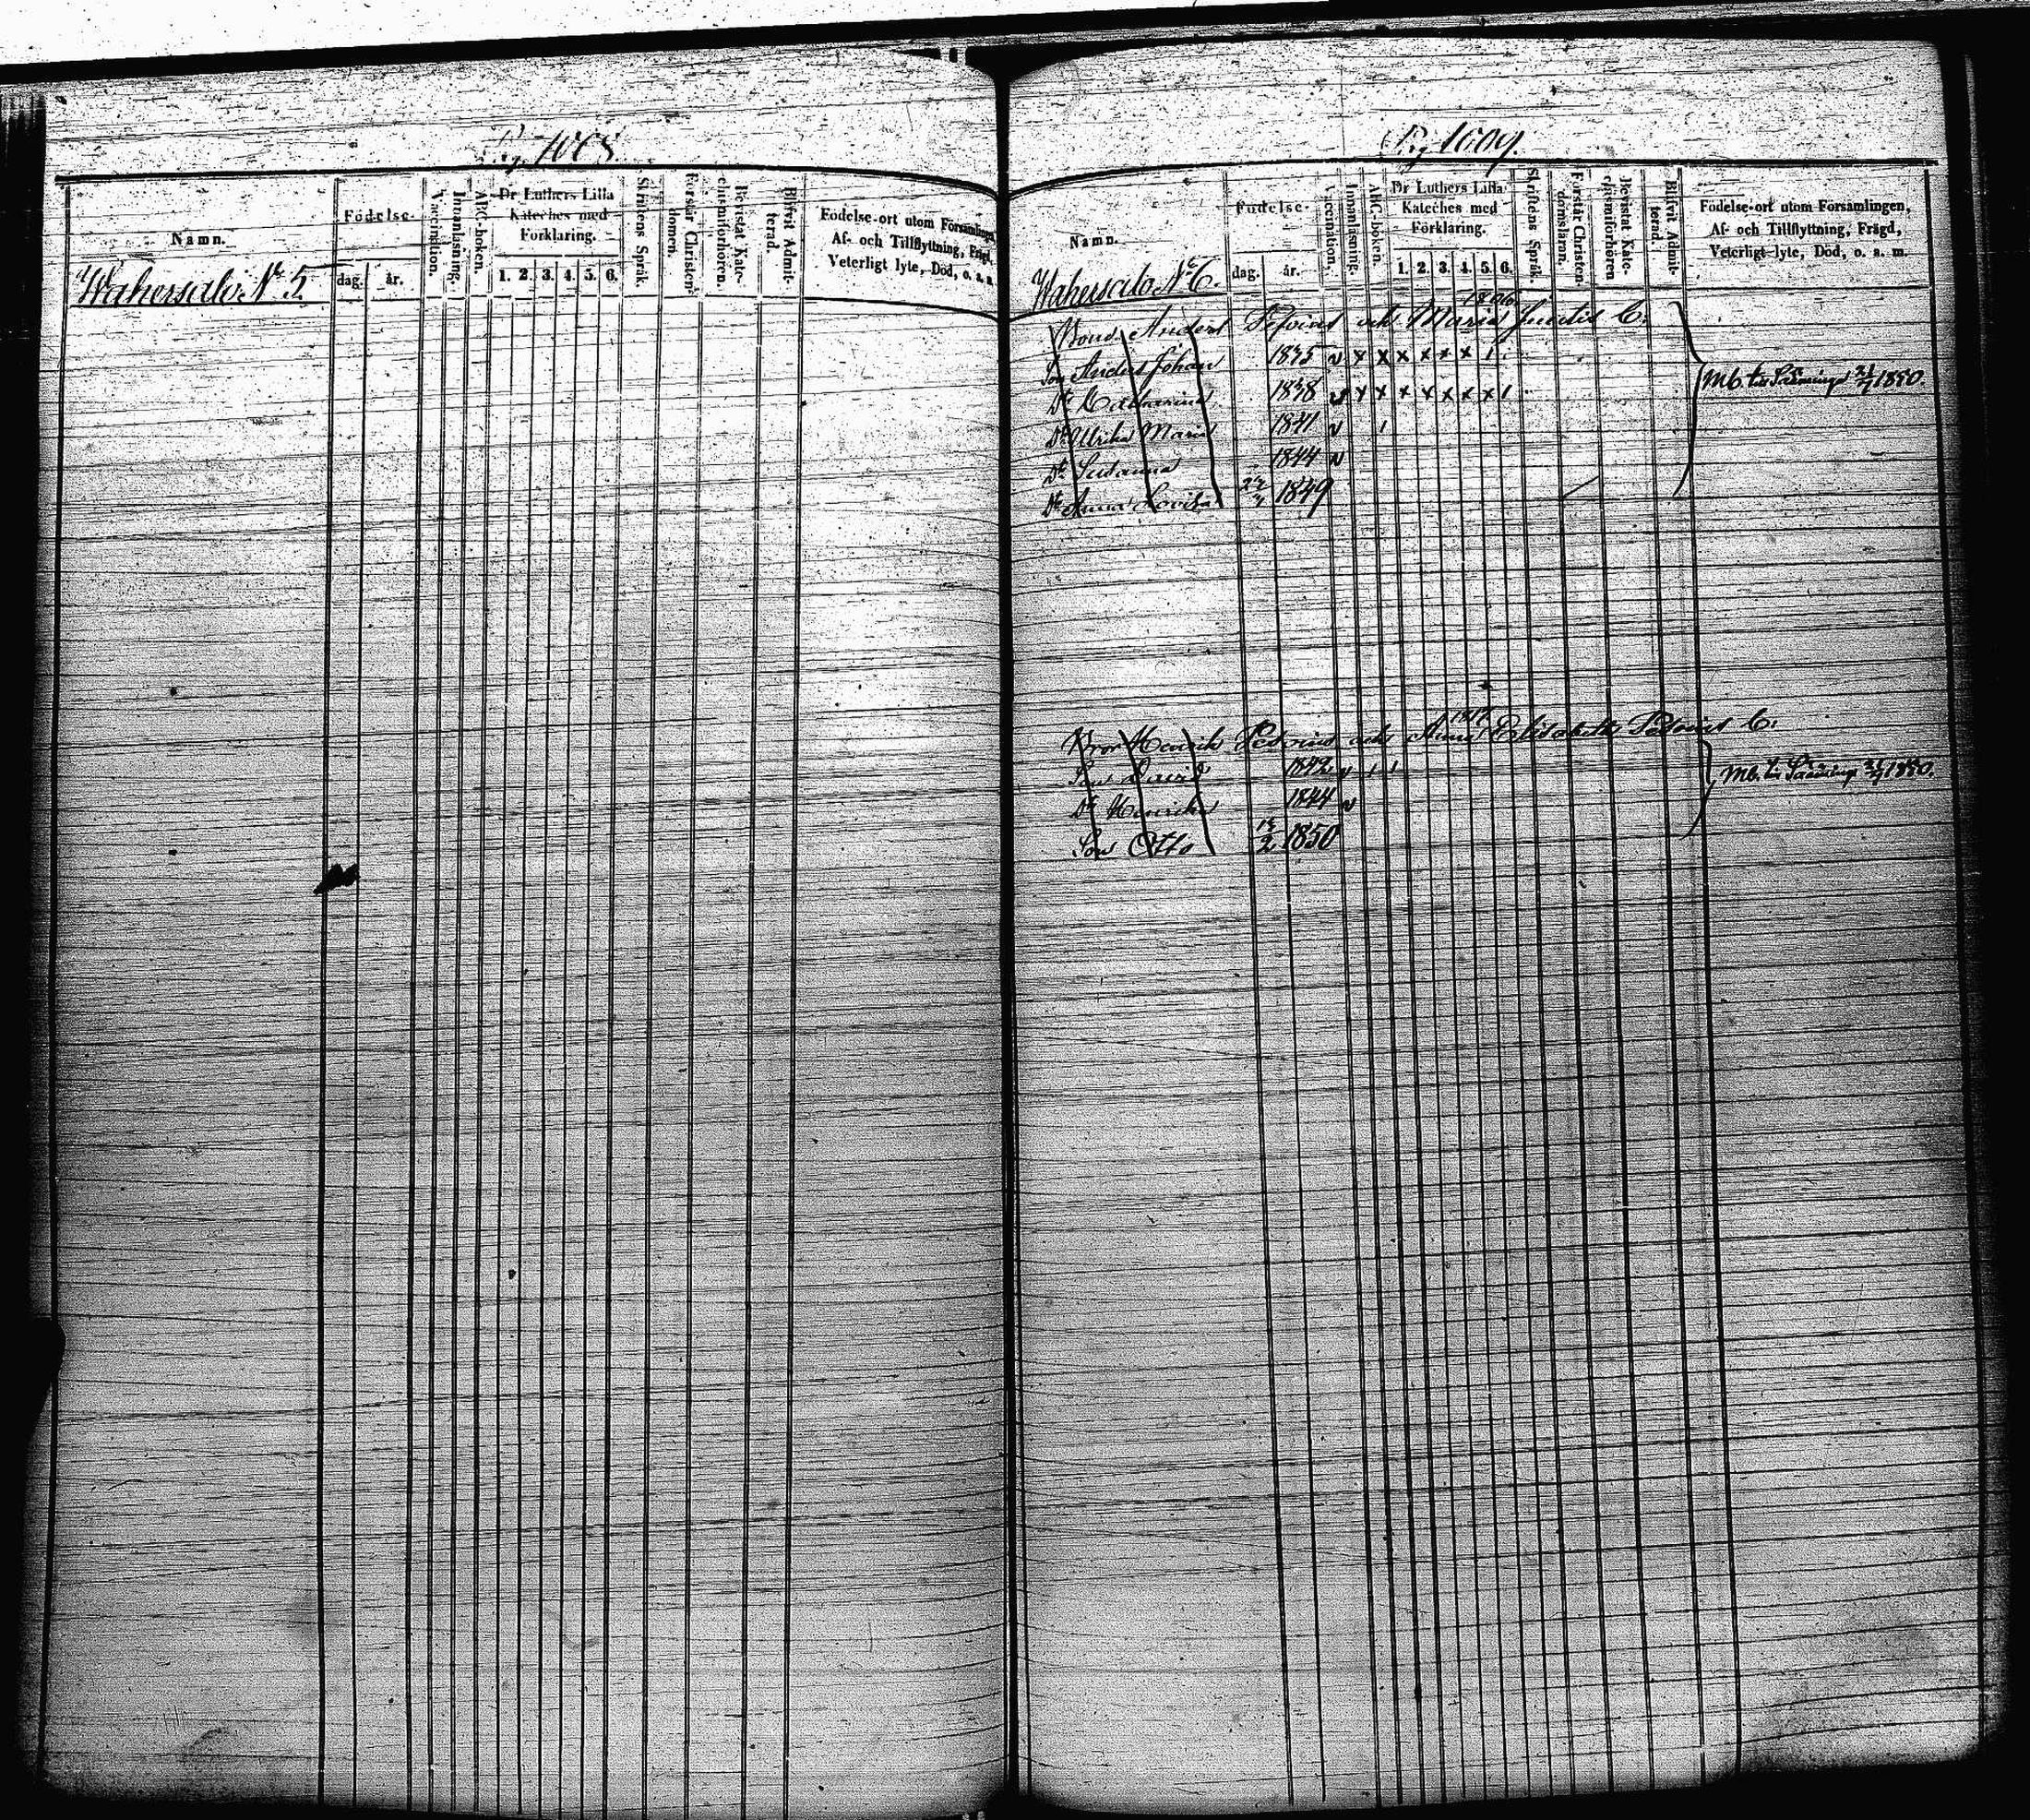 Pag. 1608.
Namn.
Födelse-
dag.
år.
Vaccination.
Innanläsning.
ABC-boken.
Dr Luthers Lilla
Kateches med
Förklaring.
1. 2. 3. 4. 5. 6.
Skriftens Språk.
Förstår Christen-
domen.
Bevistat Kate-
chismiförhören.
Blifvit Admit-
terad.
Födelse-ort utom Församlingen,
Af- och Tillflyttning, Frägd,
Veterligt lyte, Död, o. a. m.
Wahersalo N:o 5.
Pag 1609.
Namn.
Födelse-
dag.
år.
Vaccination.
Innanläsning.
ABC-boken.
Dr Luthers Lilla
Kateches med
Förklaring.
1. 2. 3. 4. 5. 6.
Skriftens Språk.
Förstår Christen-
domsläran.
Bevistat Kate-
chismiförhören
Blifvit Admit-
terad.
Födelse-ort utom Församlingen,
Af- och Tillflyttning, Frägd,
Veterligt lyte, Död, o. a. m.
Wahersalo N:o 6.
1806.
Bond. Anders och Maria B.
Son Anders Johan 1835 v x x x x x x 1
Dr Catharina 1838 v x x x x x x x 1
Dr Ulrika Maria 1841 v 1
Dr Susanna 1844 v
Dr Anna Lovisa 1849
Mb. till 1850.
1817.
Bror Henrik och Anna Elisabeth B.
Son David 1842 v 1 1
Dr Henrika 1844 v
Son Otto 1850
Mb. till 1850.